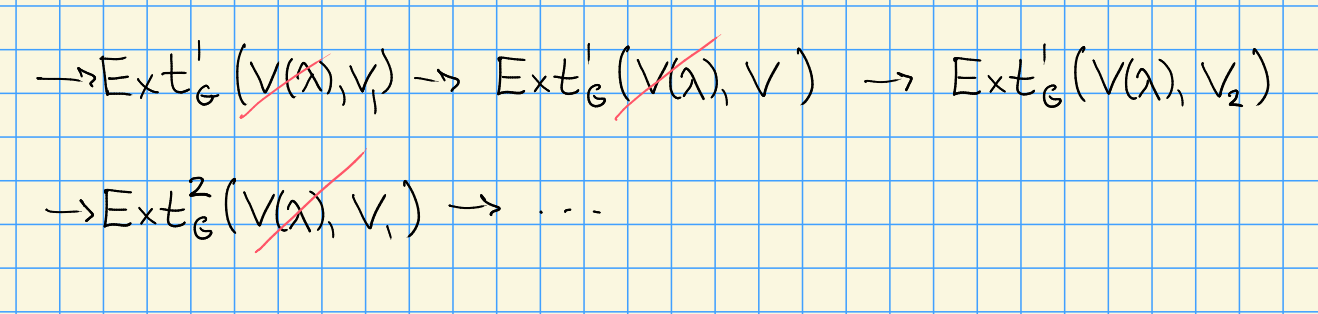 → Ext¹_G (V(λ), V₁) → Ext¹_G (V(λ), V) → Ext¹_G (V(λ), V₂)
→ Ext²_G (V(λ), V₁) → ...